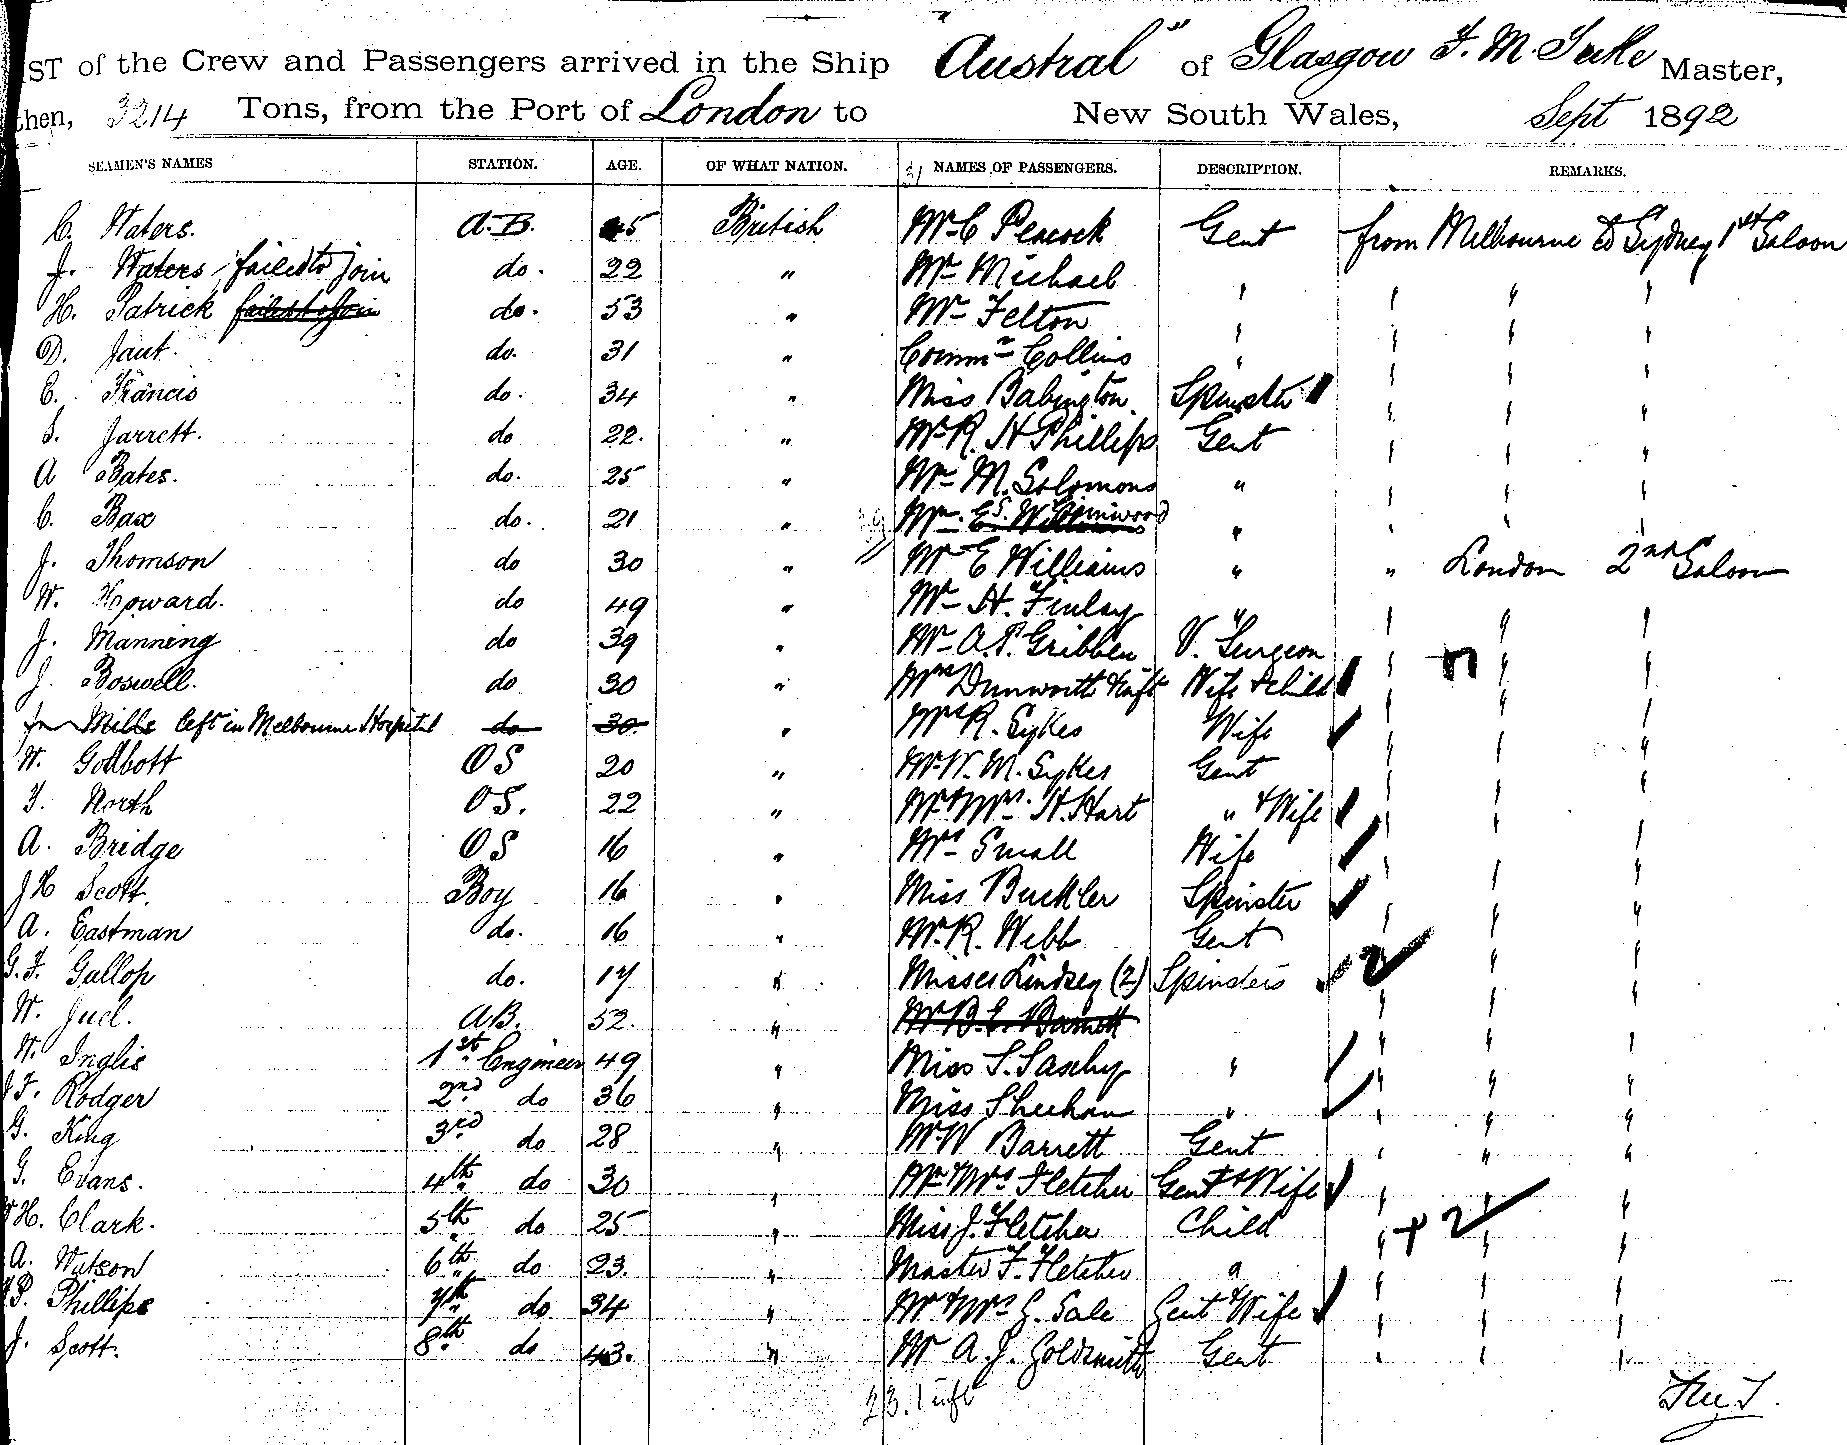 IST of the Crew and Passengers arrived in the Ship "Austral" of Glasgow F. M. Tuke Master,
then, 3214 Tons, from the Port of London to New South Wales, Sept 1892
SEAMEN'S NAMES STATION. AGE. OF WHAT NATION. NAMES OF PASSENGERS. DESCRIPTION. REMARKS.
C. Waters. A.B. 45 British Mr C Peacock Gent from Melbourne to Sydney 1st Saloon
J. Waters failed to join do. 22 " Mr Michael " " " "
H. Patrick failed to join do. 53 " Mr Felton " " " "
D. Jaut. do. 31 " Comm Collins " " " "
C. Francis do. 34 " Miss Babington Spinster " " "
S. Jarrett. do 22. " Mr R. H Phillips Gent " " "
A Bates. do. 25 " Mr M. Solomons " " " "
C. Bax do. 21 " Mr. " " " "
J. Thomson do 30 " Mr E Williams " " London 2nd Saloon
W. Howard. do 49 " Mr H. Finlay " " " "
J. Manning do 39 " Mr A. P. Gribben V. Surgeon " " "
J. Boswell. do 30 " Mrs Dunworth & Inft Wife & child " " "
Mills left in Melbourne Hospital do 30. " Mrs R. Sykes Wife " " "
W. Godbott OS 20 " Mr W. M. Sykes Gent " " "
F. North OS. 22 " Mr & Mrs. H. Hart " & Wife " " "
A. Bridge OS 16 " Mrs Small Wife " " "
J H Scott. Boy 16 " Miss Buckler Spinster " " "
A. Eastman do. 16 " Mr. R. Webb Gent " " "
G. F. Gallop do. 17 " Misses Lindsey (2) Spinsters 2 " " "
W. Juel. A.B. 52. " Mr B. E. Barrett " " "
W. Inglis 1st Engineer 49 " Miss S. " " " "
J F. Rodger 2nd do 36 " Miss Sheehan " " " "
G. King 3rd do 28 " Mr W Barrett Gent " " "
G. Evans. 4th do 30 " Mr & Mrs Fletcher Gent & Wife " " "
H. Clark. 5th do 25 " Miss J. Fletcher Child " + 2 " "
A. Watson 6th do 23. " Master F. Fletcher " " " "
P. Phillips 7th do. 34 " Mr & Mrs G. Sale Gent & Wife " " "
J. Scott. 8th do 43. " Mr A. J. Goldsmith Gent " " "
23. 1 inft